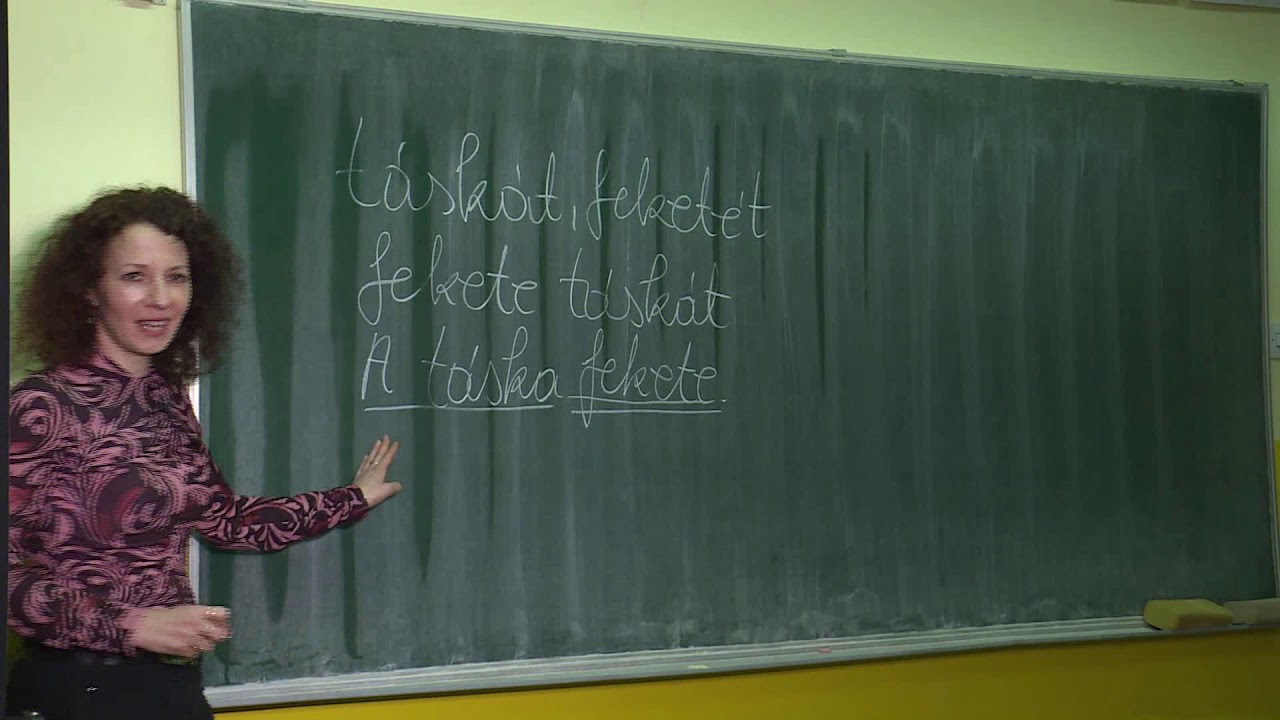 táskát, feketét
fekete táskát
A táska fekete.